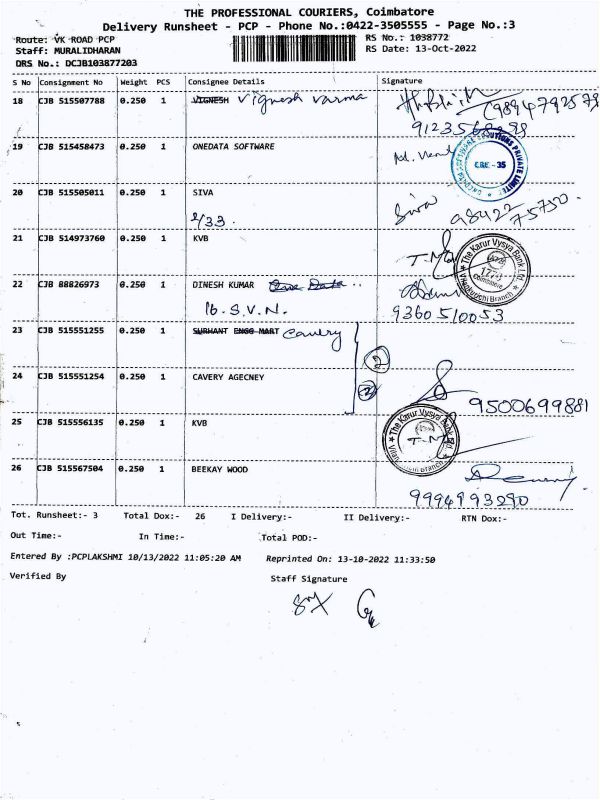 THE PROFESSIONAL COURIERS, Coimbatore
Delivery Runsheet - PCP - Phone No.:0422-3505555 - Page No.:3
Route: VK ROAD PCP
RS No.: 1038772
Staff: MURALIDHARAN
RS Date: 13-Oct-2022
DRS No.: DCJB103877203
S No Consignment No Weight PCS Consignee Details Signature
18 CJB 515507788 0.250 1 VIGNESH Vignesh varma
19 CJB 515458473 0.250 1 ONEDATA SOFTWARE
CBE - 35
20 CJB 515505011 0.250 1 SIVA Siva
2/33. 98422 75750.
21 CJB 514973760 0.250 1 KVB
The Karur Vysya Bank Ltd.
22 CJB 88826973 0.250 1 DINESH KUMAR One Data ..
16. S.V.N. 9360510053
23 CJB 515551255 0.250 1 SURHANT ENGG MART Cavery
2
24 CJB 515551254 0.250 1 CAVERY AGECNEY
9500699881
25 CJB 515556135 0.250 1 KVB
The Karur Vysya Bank Ltd.
26 CJB 515567504 0.250 1 BEEKAY WOOD
9994993290
Tot. Runsheet:- 3 Total Dox:- 26 I Delivery:- II Delivery:- RTN Dox:-
Out Time:- In Time:- Total POD:-
Entered By :PCPLAKSHMI 10/13/2022 11:05:20 AM Reprinted On: 13-10-2022 11:33:50
Verified By Staff Signature